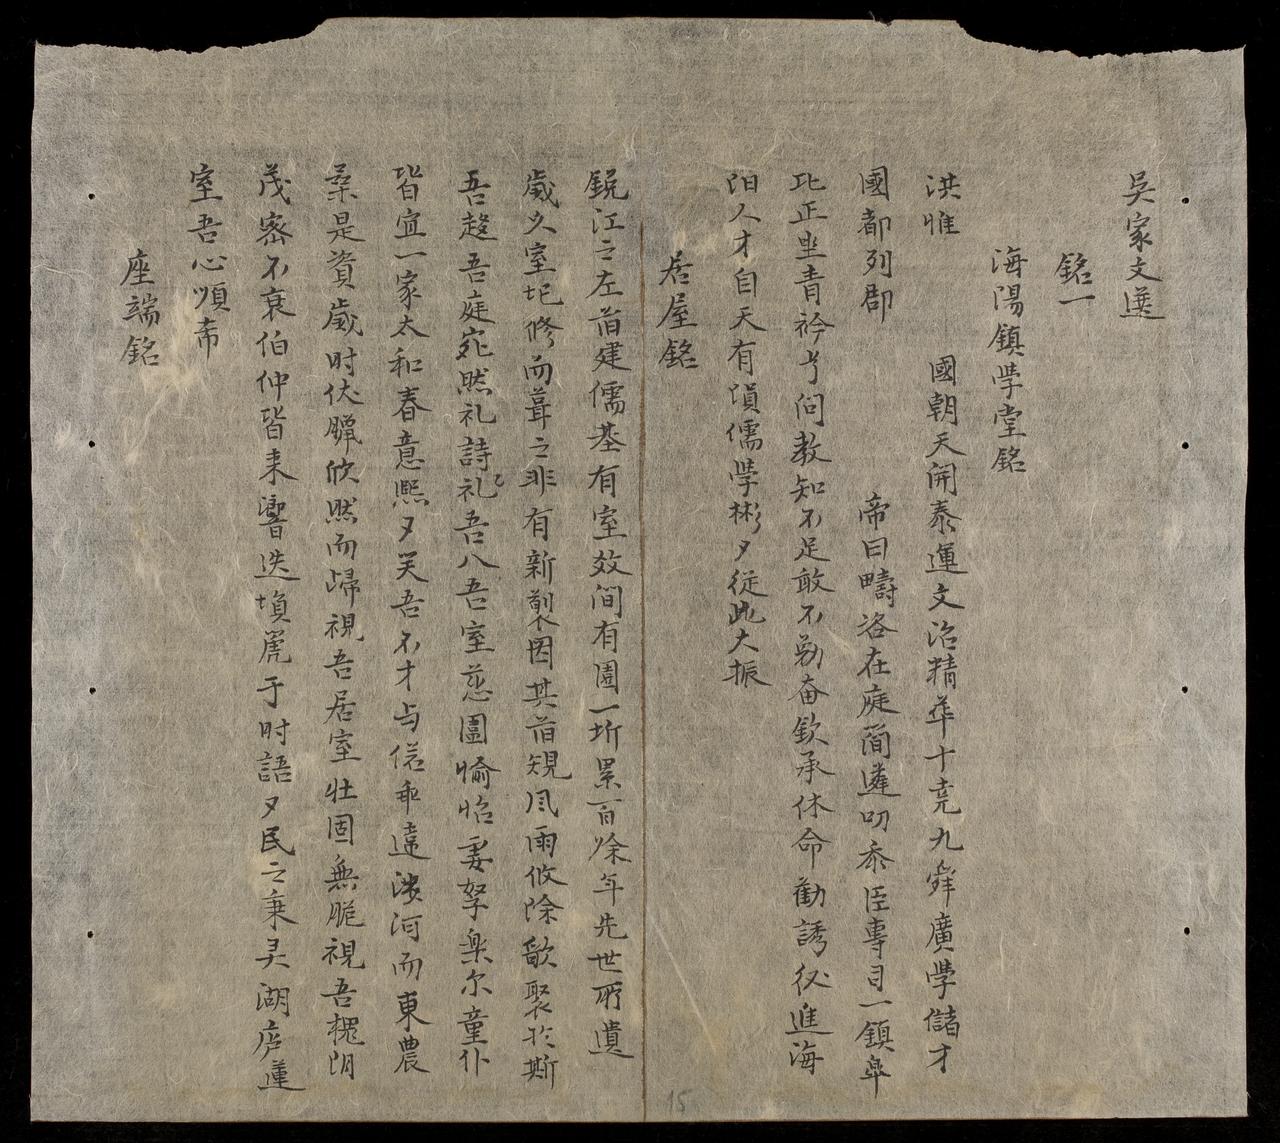 吳家文選
銘一
海陽鎮学堂銘
洪惟 國朝天開泰運文治精華十堯九舜廣学儲才
國都列郡 帝曰疇咨在庭簡遴叨忝臣專司一鎮皐
比正坐青衿兮问教知不足敢不勤奋欽承休命勸誘必進海
阳人才自天有隕儒学彬夕從此大振
居屋銘
鋭江之左首建儒基有室效间有園一圻累百馀年先世所遺
歲久室圮修而葺之非有新製因其旧規风雨攸除歐聚扵斯
吾趍吾庭宛然礼詩礼吾入吾室慈圍愉怡妻孥楽尔童仆
皆宜一家太和春意熙夕关吾不才与俗乖違涉河而東農
桒是資歲时伏臘欣然而歸視吾居室壮固無脆視吾槐阴
茂密不衰伯仲皆来響迭塤篪于时語夕民之秉㚑湖庐蓮
室吾心順帝
座端銘
15